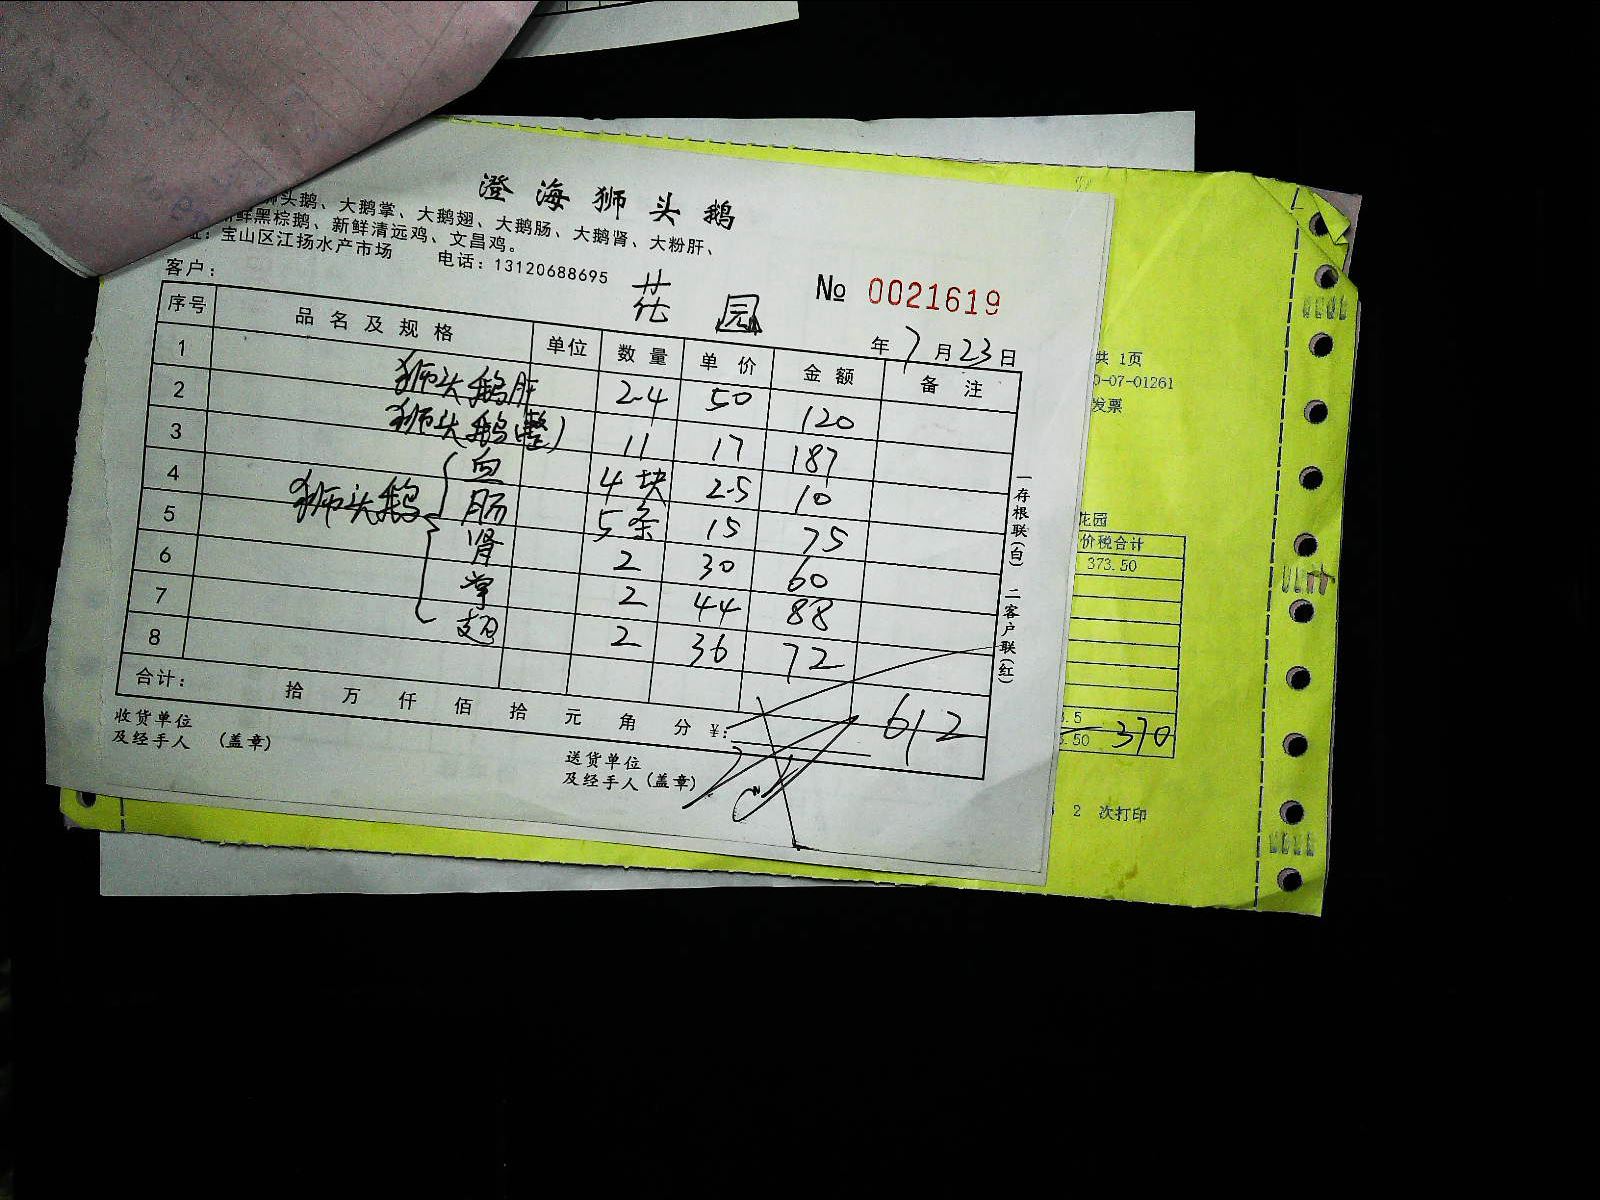 澄海狮头鹅
狮头鹅、大鹅掌、大鹅翅、大鹅肠、大鹅肾、大粉肝、
新鲜黑棕鹅、新鲜清远鸡、文昌鸡。
址：宝山区江扬水产市场 电话：13120688695
客户： 花园 № 0021619
年 7 月 23 日
序号 品名及规格 单位 数量 单价 金额 备注
1 狮头鹅肝 2.4 50 120
2 狮头鹅(整) 11 17 187
3 血 4块 2.5 10
4 狮头鹅 肠 5条 15 75
5 肾 2 30 60
6 掌 2 44 88
7 翅 2 36 72
8
合计： 拾 万 仟 佰 拾 元 角 分 ¥: 612
收货单位
及经手人 (盖章)
送货单位
及经手人 (盖章)
一存根联(白) 二客户联(红)
共 1页
0-07-01261
发票
花园
价税合计
373.50
3.5
3.50 370
2 次打印